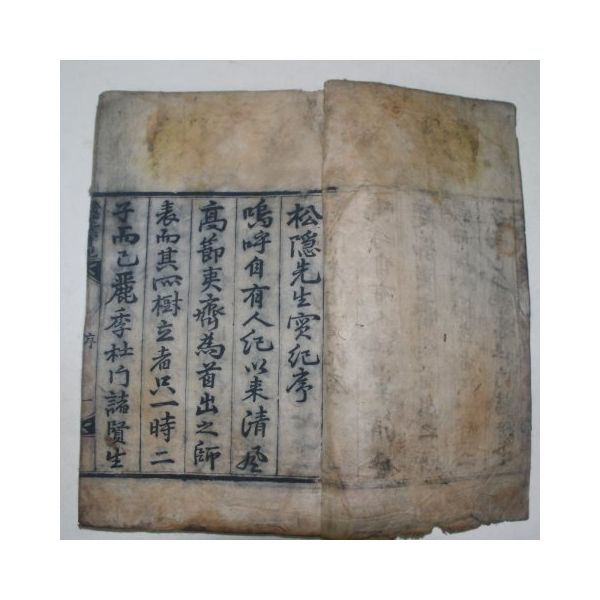 松隱先生實紀序
嗚呼自有人紀以來清風
高節夷齊為首出之師
表而其所樹立者只一時二
子而已麗季杜門諸賢生
序
一